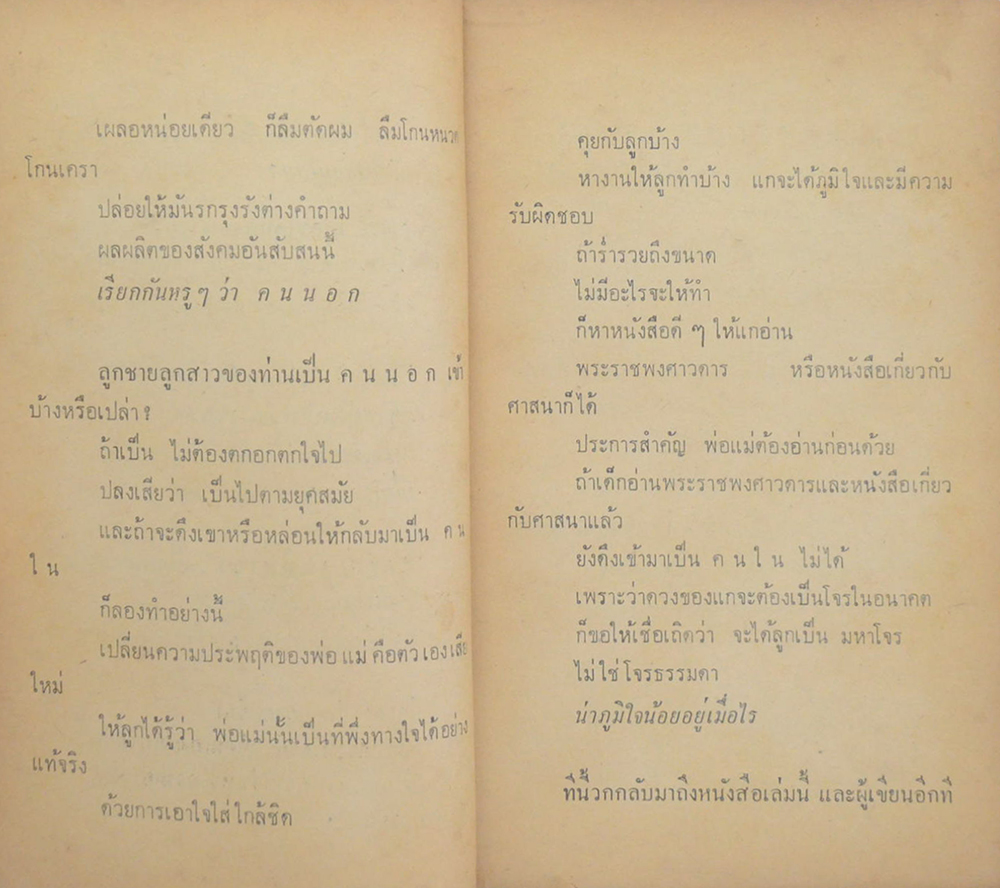 เผลอหน่อยเดียว ก็ลืมตัดผม ลืมโกนหนวด
โกนเครา
ปล่อยให้มันรกรุงรังต่างคำถาม
ผลผลิตของสังคมอันสับสนนี้
เรียกกันหรูๆ ว่า ค น น อ ก
ลูกชายลูกสาวของท่านเป็น ค น น อ ก เข้า
บ้างหรือเปล่า?
ถ้าเป็น ไม่ต้องตกอกตกใจไป
ปลงเสียว่า เป็นไปตามยุคสมัย
และถ้าจะดึงเขาหรือหล่อนให้กลับมาเป็น ค น
ใ น
ก็ลองทำอย่างนี้
เปลี่ยนความประพฤติของพ่อแม่ คือตัวเองเสีย
ใหม่
ให้ลูกได้รู้ว่า พ่อแม่นั้นเป็นที่พึ่งทางใจได้อย่าง
แท้จริง
ด้วยการเอาใจใส่ใกล้ชิด
คุยกับลูกบ้าง
หางานให้ลูกทำบ้าง แกจะได้ภูมิใจและมีความ
รับผิดชอบ
ถ้าร่ำรวยถึงขนาด
ไม่มีอะไรจะให้ทำ
ก็หาหนังสือดี ๆ ให้แกอ่าน
พระราชพงศาวดาร หรือหนังสือเกี่ยวกับ
ศาสนาก็ได้
ประการสำคัญ พ่อแม่ต้องอ่านก่อนด้วย
ถ้าเด็กอ่านพระราชพงศาวดารและหนังสือเกี่ยว
กับศาสนาแล้ว
ยังดึงเข้ามาเป็น ค น ใ น ไม่ได้
เพราะว่าดวงของแกจะต้องเป็นโจรในอนาคต
ก็ขอให้เชื่อเถิดว่า จะได้ลูกเป็น มหาโจร
ไม่ใช่โจรธรรมดา
น่าภูมิใจน้อยอยู่เมื่อไร
ทีนี้วกกลับมาถึงหนังสือเล่มนี้ และผู้เขียนอีกที